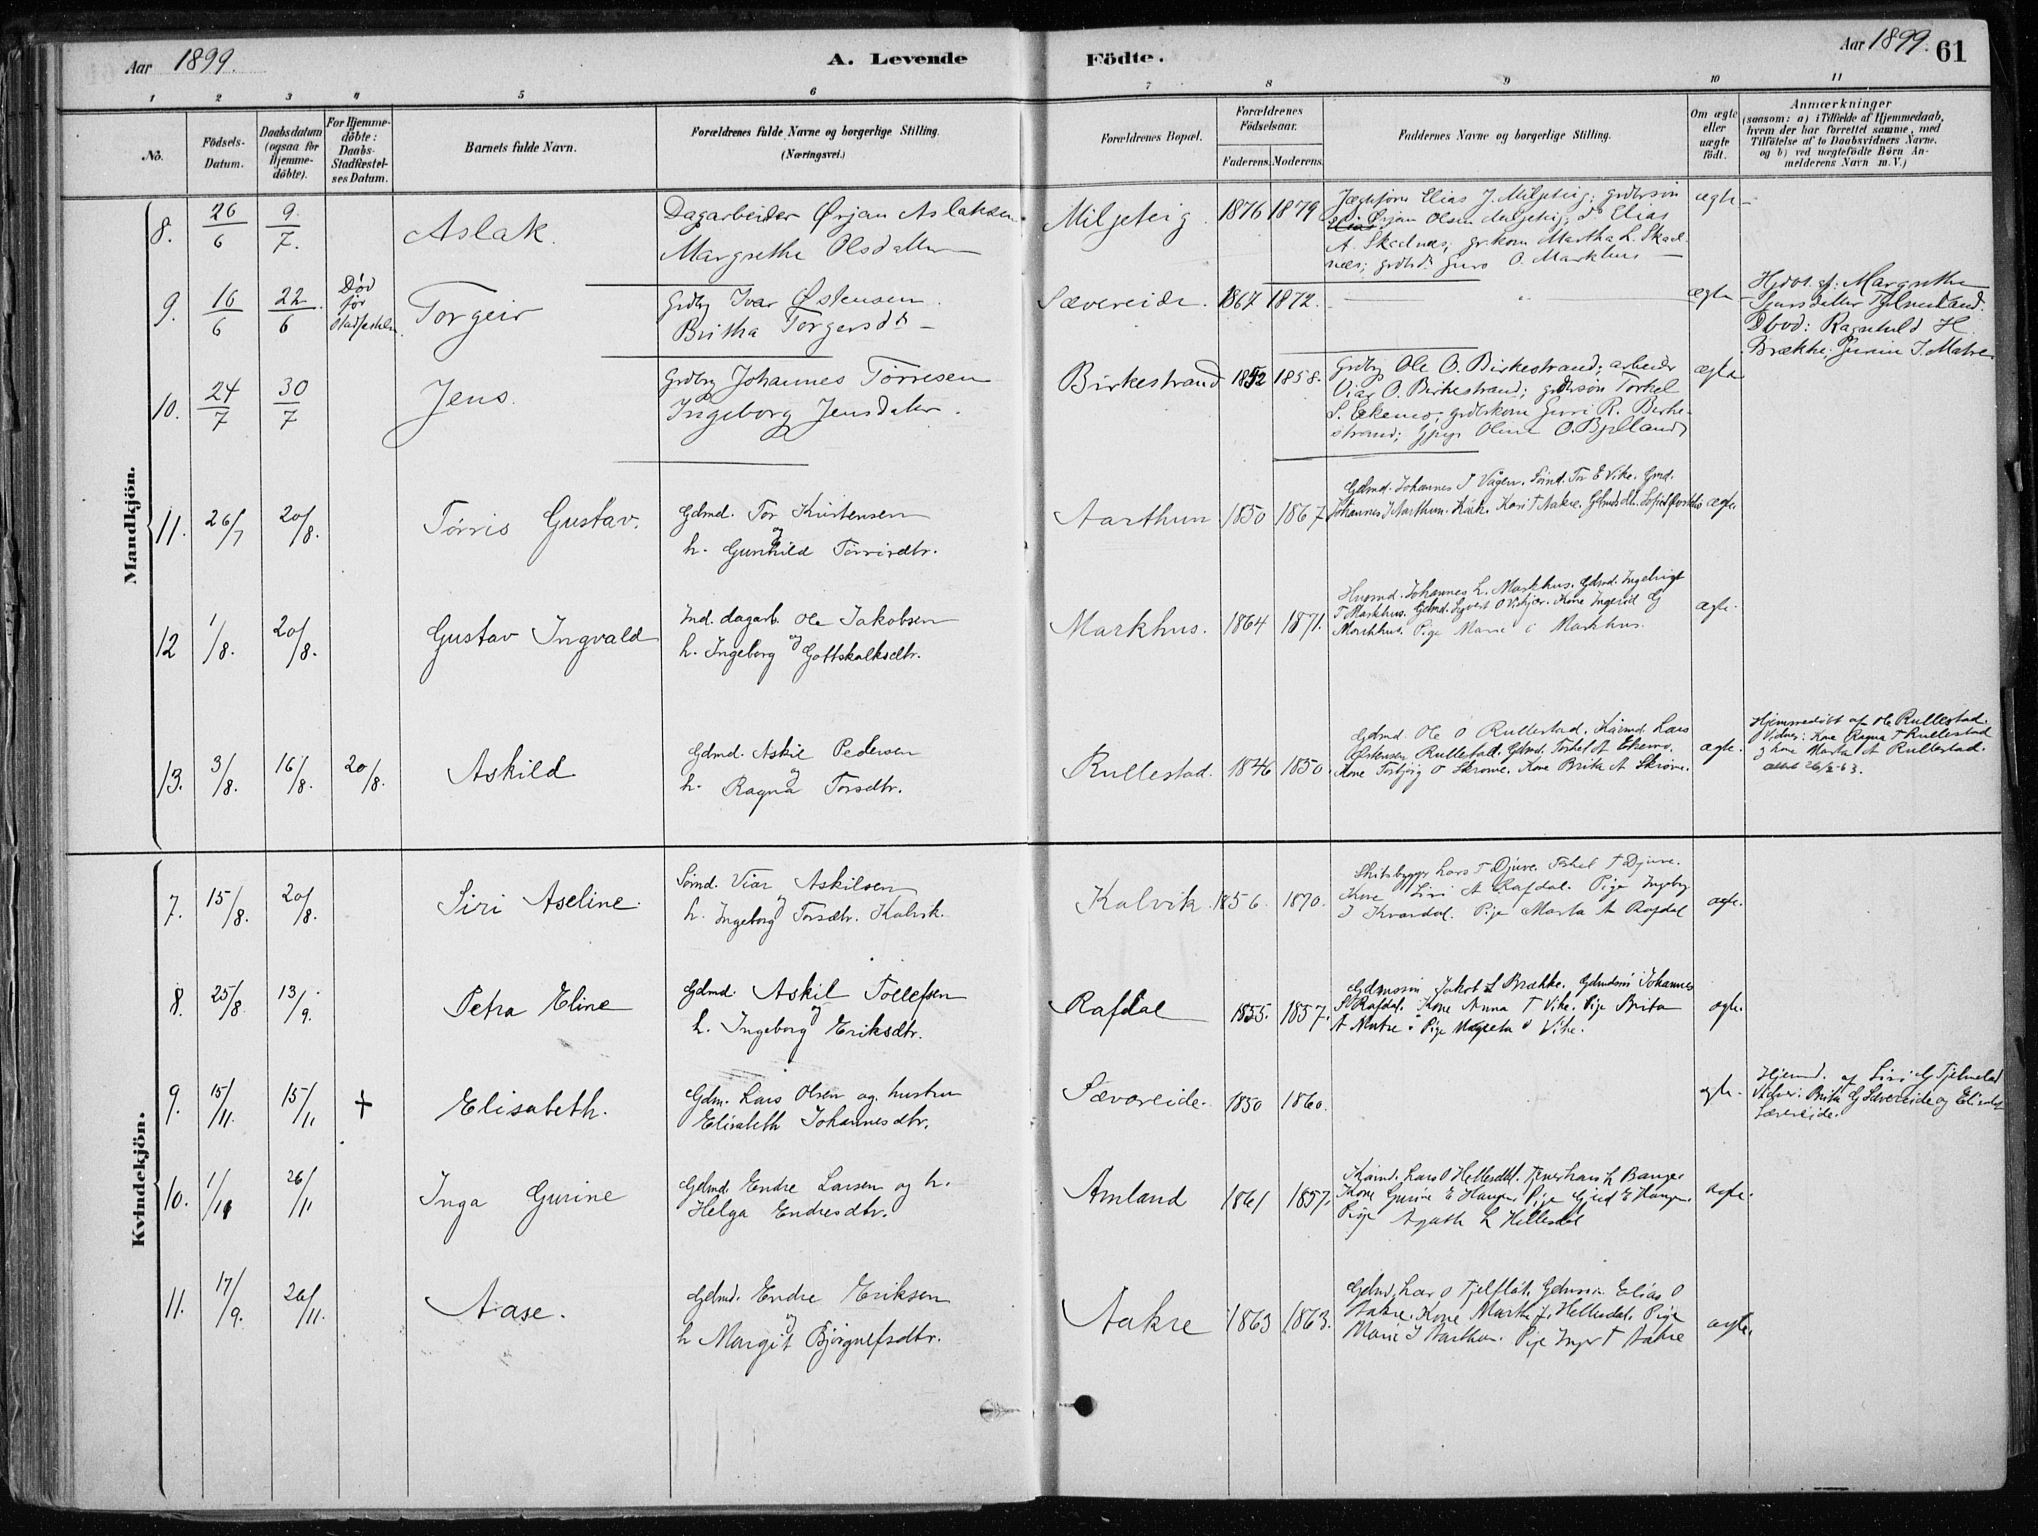 Aar 1899.
A. Levende Födte.
Aar 1899. 61
1 2 3 4 5 6 7 8 9 10 11
No.
Födsels-Datum.
Daabsdatum (ogsaa for Hjemme-döbte).
For Hjemme-döbte: Daabs-Stadfæstel-ses Datum.
Barnets fulde Navn.
Forældrenes fulde Navne og borgerlige Stilling.
(Næringsvei.)
Forældrenes Bopæl.
Forældrenes Födselsaar.
Faderens. Moderens.
Faddernes Navne og borgerlige Stilling.
Om ægte eller uægte födt.
Anmærkninger
(saasom: a) i Tilfælde af Hjemmedaab,
hvem der har forrettet samme, med
Tilföielse af to Daabsvidners Navne,
og b) ved uægtefödte Børn An-
melderens Navn m. V.)
Mandkjön.
8. 26/6 9/7. Aslak. Dagarbeider Ørjan Aslaksen
Margrethe Olsdatter
Miljeteig 1876 1879
Elias J. Miljeteig; grdbrsøn
Ørjan Olsen Miljeteig, do Elias
A. Skaelnæs; gr.kone Martha L. Skael-
næs; Guro O. Markhus
ægte
9. 16/6 22/6 Død før Stadfæstelsen. Torgeir Grdbr Ivar Østensen
Britha Torgersdtr
Sævereide. 1867 1872. ægte
Hjdbt. af Margrethe
Dbvd: Ragnhild H.
Brække; J. Matre
10. 24/7 30/7 Jens. Grdbr Johannes Tørresen
Ingeborg Jensdatter.
Birkestrand 1852 1858.
Grdbr Ole O. Birkestrand; arbeider
Viar O. Birkestrand; grdbrsøn Torkel
S. Ekemo; grdbrkone Guri R. Birke-
strand; Oline O. Bjelland
ægte
11. 26/7 20/8. Tørris Gustav. Gdmd. Tor Kristensen
og
h. Gunhild Tørrisdtr.
Aarthun 1850 1867
Gdmd. Johannes T Vågen. Tor E Vike. Gmd.
Johannes J Aarthun. Kari T Aakre.
ægte
12 1/8. 20/8. Gustav Ingvald Ind. dagarb. Ole Jakobsen
og
h. Ingeborg Gottskalksdtr.
Markhus. 1864 1871.
Husmd. Johannes L. Markhus. Gdmd. Ingebrigt
T Markhus. Gdmd. Sjvert O Kone Ingerid G
Markhus. Pige Marie Markhus.
ægte.
13. 3/8. 16/8. 20/8. Askild Gdmd. Askil Pedersen
og
h. Ragna Torsdtr.
Rullestad. 1846 1850.
Gdmd. Ole O Rullestad. Kaarmd. Lars
Østensen Rullestad. Gdmd. Torkel A Ekemo.
Kone Torbjørg O Skromme. Kone Brita A Skromme.
ægte.
Hjemmedöbt af Ole Rullestad.
Vidner: Kone Ragna T Rullestad
og kone Marta A Rullestad.
Kvindekjön.
7. 15/8. 20/8. Siri Aseline. Viar Askilsen
og
h. Ingeborg Torsdtr. Kalvik.
Kalvik. 1856. 1870.
Lars T Djuve. Torkel T Djuve.
Kone Siri A Rafdal. Pige Ingebor
J Kvandal. Pige Marta A Rafdal
ægte.
8. 25/8 13/9. Petra Eline Gdmd. Askil Tollefsen
og
h. Ingeborg Eriksdtr.
Rafdal 1855. 1857.
Gdmssøn Jakob L Brække. Gdmdssøn Johannes
S Rafdal. Kone Anna T Vike. Pige Brita
A Matre. Pige Magreta O Vike.
ægte.
9. 15/11. 15/11 + Elisabeth. Gdm. Lars Olsen og hustru
Elisabeth Johannesdtr.
Sævereide. 1850 1860. ægte.
Hjemd. af Siri G Tjelmeland
Vidner: Brita G Sævereide og
Sævereide.
10. 1/11 26/11 Inga Gurine Gdmd. Endre Larsen og h.
Helga Endresdtr.
Amland 1861 1857.
Kaarmd. Lars O Hellesdal. Tjener Hans L Bange
Kone Gurine E Haugen Pige Gjrid E Haugen.
Pige Agathe L Hellesdal
ægte.
11. 17/9. 26/11. Aase. Gdmd. Endre Eriksen
og
h Margit Bjørgulfsdtr.
Aakre 1863 1863.
Gdmd. Lars O Tjelflåt. Gdmssøn Elias O
Aakre. Kone Martha J. Hellesdal. Pige
Marie J Aarthun. Pige Inger T Aakre
ægte.